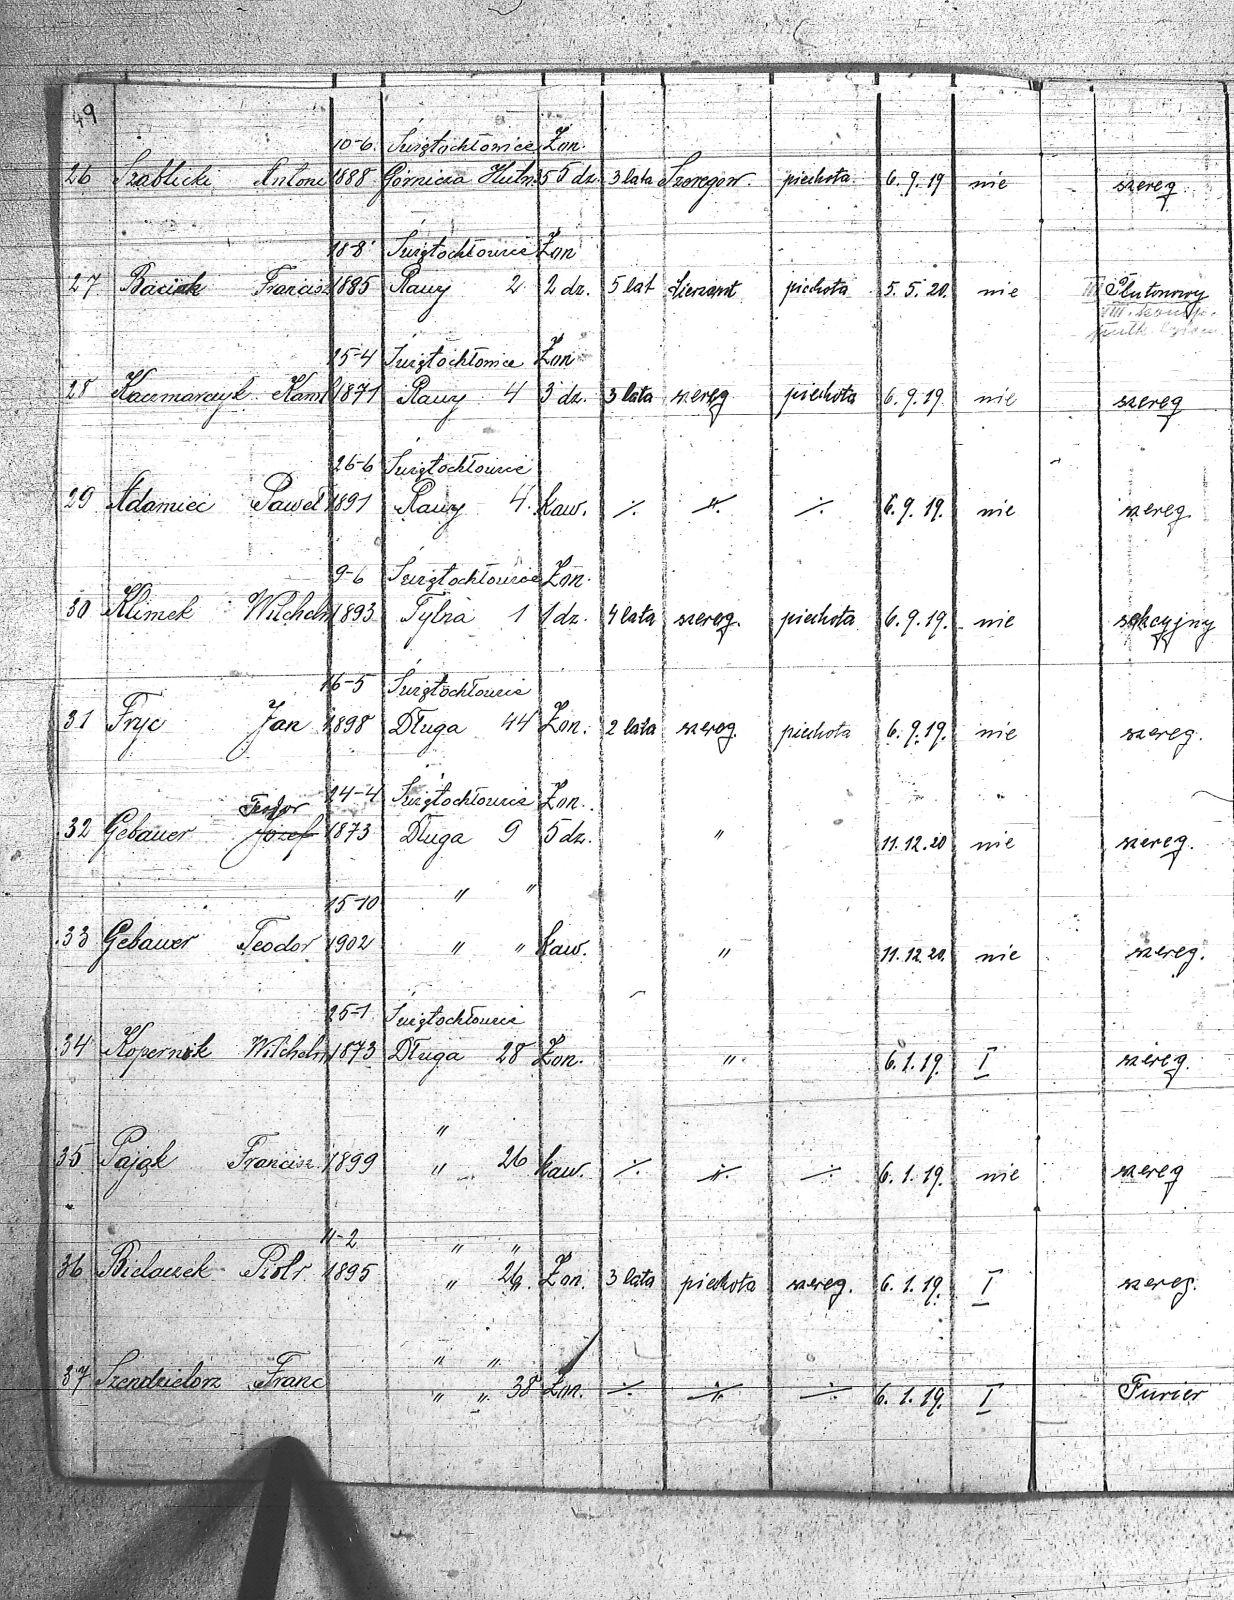 49
10-6. Świętochłowice Żon.
26 Szablicki Antoni 1888 Górnicza Hutn. 35 5 dz. 3 lata Szeregow. piechota 6.9.19 nie szereg
18-8 Świętochłowice Żon
27 Baciok Francisz 1885 Rawy 2 2 dz. 5 lat sierzant piechota 5.5.20. nie III Plutonowy
VIII. komp.
25-4 Świętochłowice Żon
28 Kaczmarczyk Karol 1871 Rawy 4 3 dz. 3 lata szereg piechota 6.9.19 nie szereg
26-6 Świętochłowice
29 Adamiec Paweł 1891 Rawy 4. kaw. ·/. ·/. ·/. 6.9.19. nie szereg.
9-6 Świętochłowice Żon.
30 Klimek Wilchelm 1893 Tylna 1 1 dz. 4 lata szereg. piechota 6.9.19. nie sekcyjny
16-5 Świętochłowice
31 Fryc Jan 1898 Długa 44 Żon. 2 lata szereg. piechota 6.9.19. nie szereg.
Teodor 24-4 Świętochłowice Żon.
32 Gebauer Józef 1873 Długa 9 5 dz. " 11.12.20 nie szereg.
15-10 " "
33 Gebauer Teodor 1902 " " kaw. " 11.12.20. nie szereg.
25-1 Świętochłowice
34 Kopernik Wilchelm 1873 Długa 28 Żon. " 6.1.19. I szereg.
"
35 Pająk Francisz. 1899 " 26 kaw. ·/. ·/. ·/. 6.1.19. nie szereg
11-2 " "
36 Bielaczek Piotr 1895 " 26 " Żon. 3 lata piechota szereg. 6.1.19. I szereg.
" "
37 Szendzielorz Franc " " 38 Żon. ·/. ·/. ·/. 6.1.19. I Furier